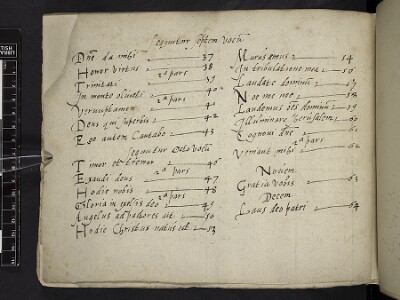 Sequntur septem vocũ
Dñe da mihi 37
Honor virtus 38
2ª pars
Trinitati 39
In monte oliveti 40
2ª pars
Verumtamen 40
Deus qui superbis 42
Ego autem Cantabo 43
Sequntur Octo vocũ
Timor et tremor 46
2ª pars
Exaudi deus 47
Hodie nobis 48
2ª pars
Gloria in excelsis deo 49
Angelus ad pastores ait 50
Hodie Christus natus est 53
54
In tribulatione mea 56
Laudate dominũ 57
Noe noe noe 58
Laudemus oẽs dominũ 59
Illuminare Jerusalem 60
Cognovi dñe 61
2ª pars
Veniant mihi 62
Novem
Gratia vobis 63
Decem
Laus deo patri 64